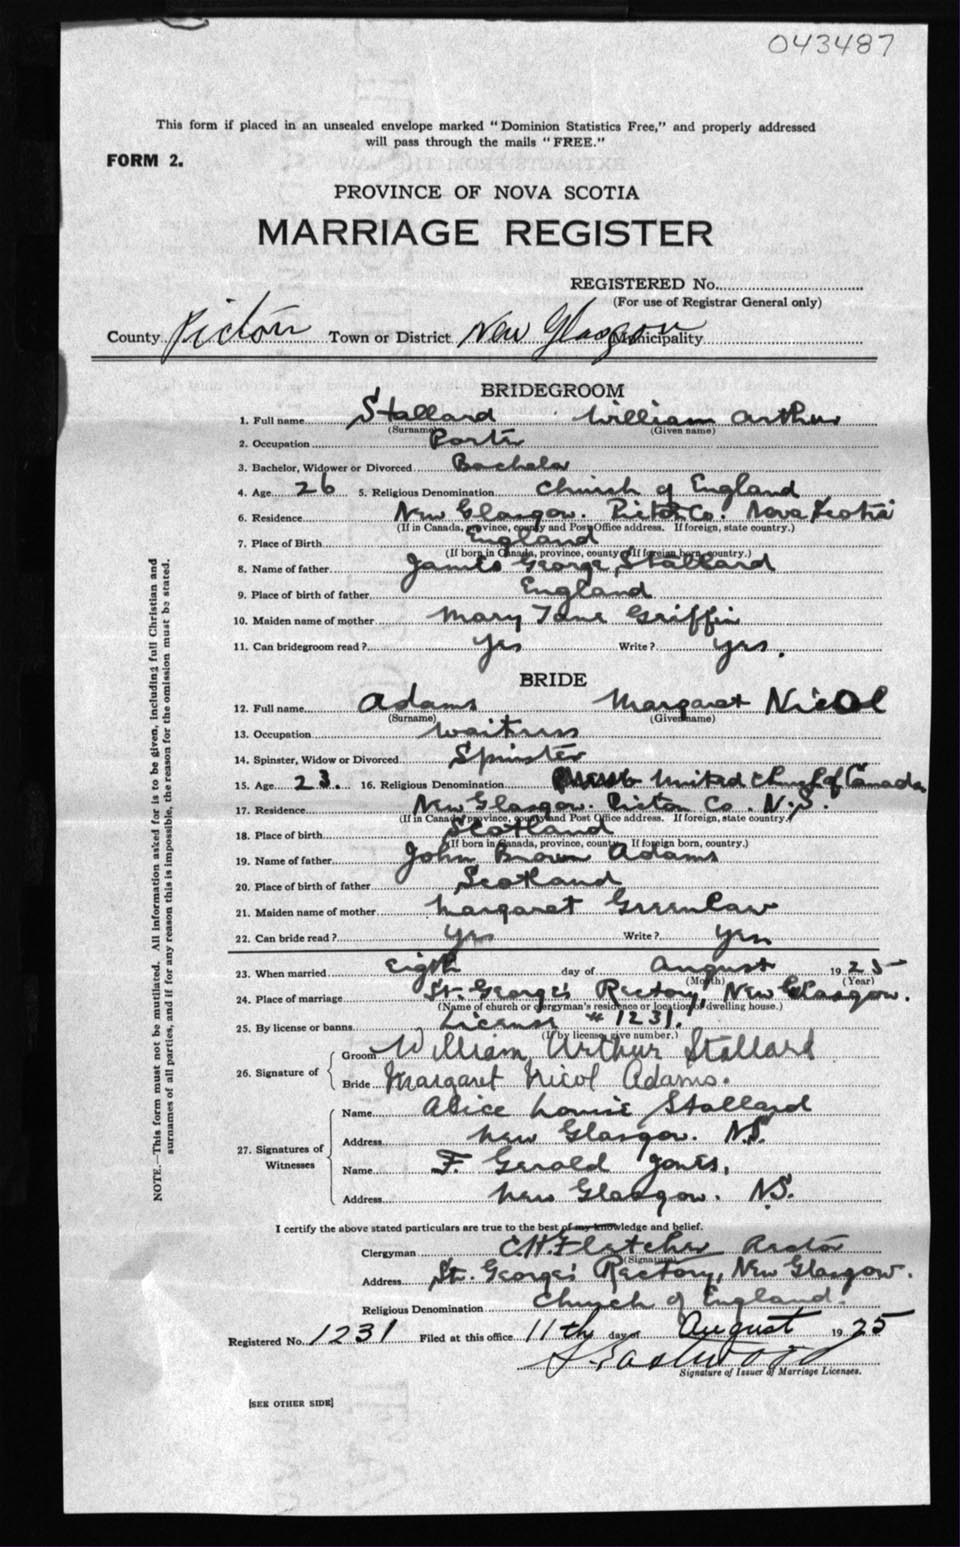 043487
This form if placed in an unsealed envelope marked "Dominion Statistics Free," and properly addressed
will pass through the mails "FREE."
FORM 2.
PROVINCE OF NOVA SCOTIA
MARRIAGE REGISTER
REGISTERED No.
(For use of Registrar General only)
County Pictou Town or District New Glasgow Municipality
BRIDEGROOM
1. Full name Stallard William Arthur
(Surname) (Given name)
2. Occupation Porter
3. Bachelor, Widower or Divorced Bachelor
4. Age 26 5. Religious Denomination Church of England
6. Residence New Glasgow. Pictou Co. Nova Scotia
(If in Canada, province, county and Post Office address. If foreign, state country.)
7. Place of Birth England
(If born in Canada, province, county. If foreign born, country.)
8. Name of father James George Stallard
9. Place of birth of father England
10. Maiden name of mother Mary Jane Griffin
11. Can bridegroom read? Yes Write? Yes.
BRIDE
12. Full name Adams Margaret Nicol
(Surname) (Given name)
13. Occupation Waitress
14. Spinster, Widow or Divorced Spinster
15. Age 23 16. Religious Denomination United Church of Canada
17. Residence New Glasgow. Pictou Co. N.S.
(If in Canada, province, county and Post Office address. If foreign, state country.)
18. Place of birth Scotland
(If born in Canada, province, county. If foreign born, country.)
19. Name of father John Brown Adams
20. Place of birth of father Scotland
21. Maiden name of mother Margaret Greenlaw
22. Can bride read? Yes Write? Yes
23. When married Eigth day of August 1925
(Month) (Year)
24. Place of marriage St. George's Rectory, New Glasgow.
(Name of church or clergyman's residence or location of dwelling house.)
25. By license or banns License # 1231.
(If by license, give number.)
26. Signature of
Groom William Arthur Stallard
Bride Margaret Nicol Adams.
27. Signatures of Witnesses
Name Alice Louise Stallard
Address New Glasgow. N.S.
Name F. Gerald Jones.
Address New Glasgow. N.S.
I certify the above stated particulars are true to the best of my knowledge and belief.
Clergyman C.H. Fletcher Rector
(Signature)
Address St. George's Rectory, New Glasgow.
Religious Denomination Church of England.
Registered No. 1231 Filed at this office 11th day of August 1925
Eastwood
Signature of Issuer of Marriage Licenses.
[SEE OTHER SIDE]
NOTE.—This form must not be mutilated. All information asked for is to be given, including full Christian and
surnames of all parties, and if for any reason this is impossible, the reason for the omission must be stated.